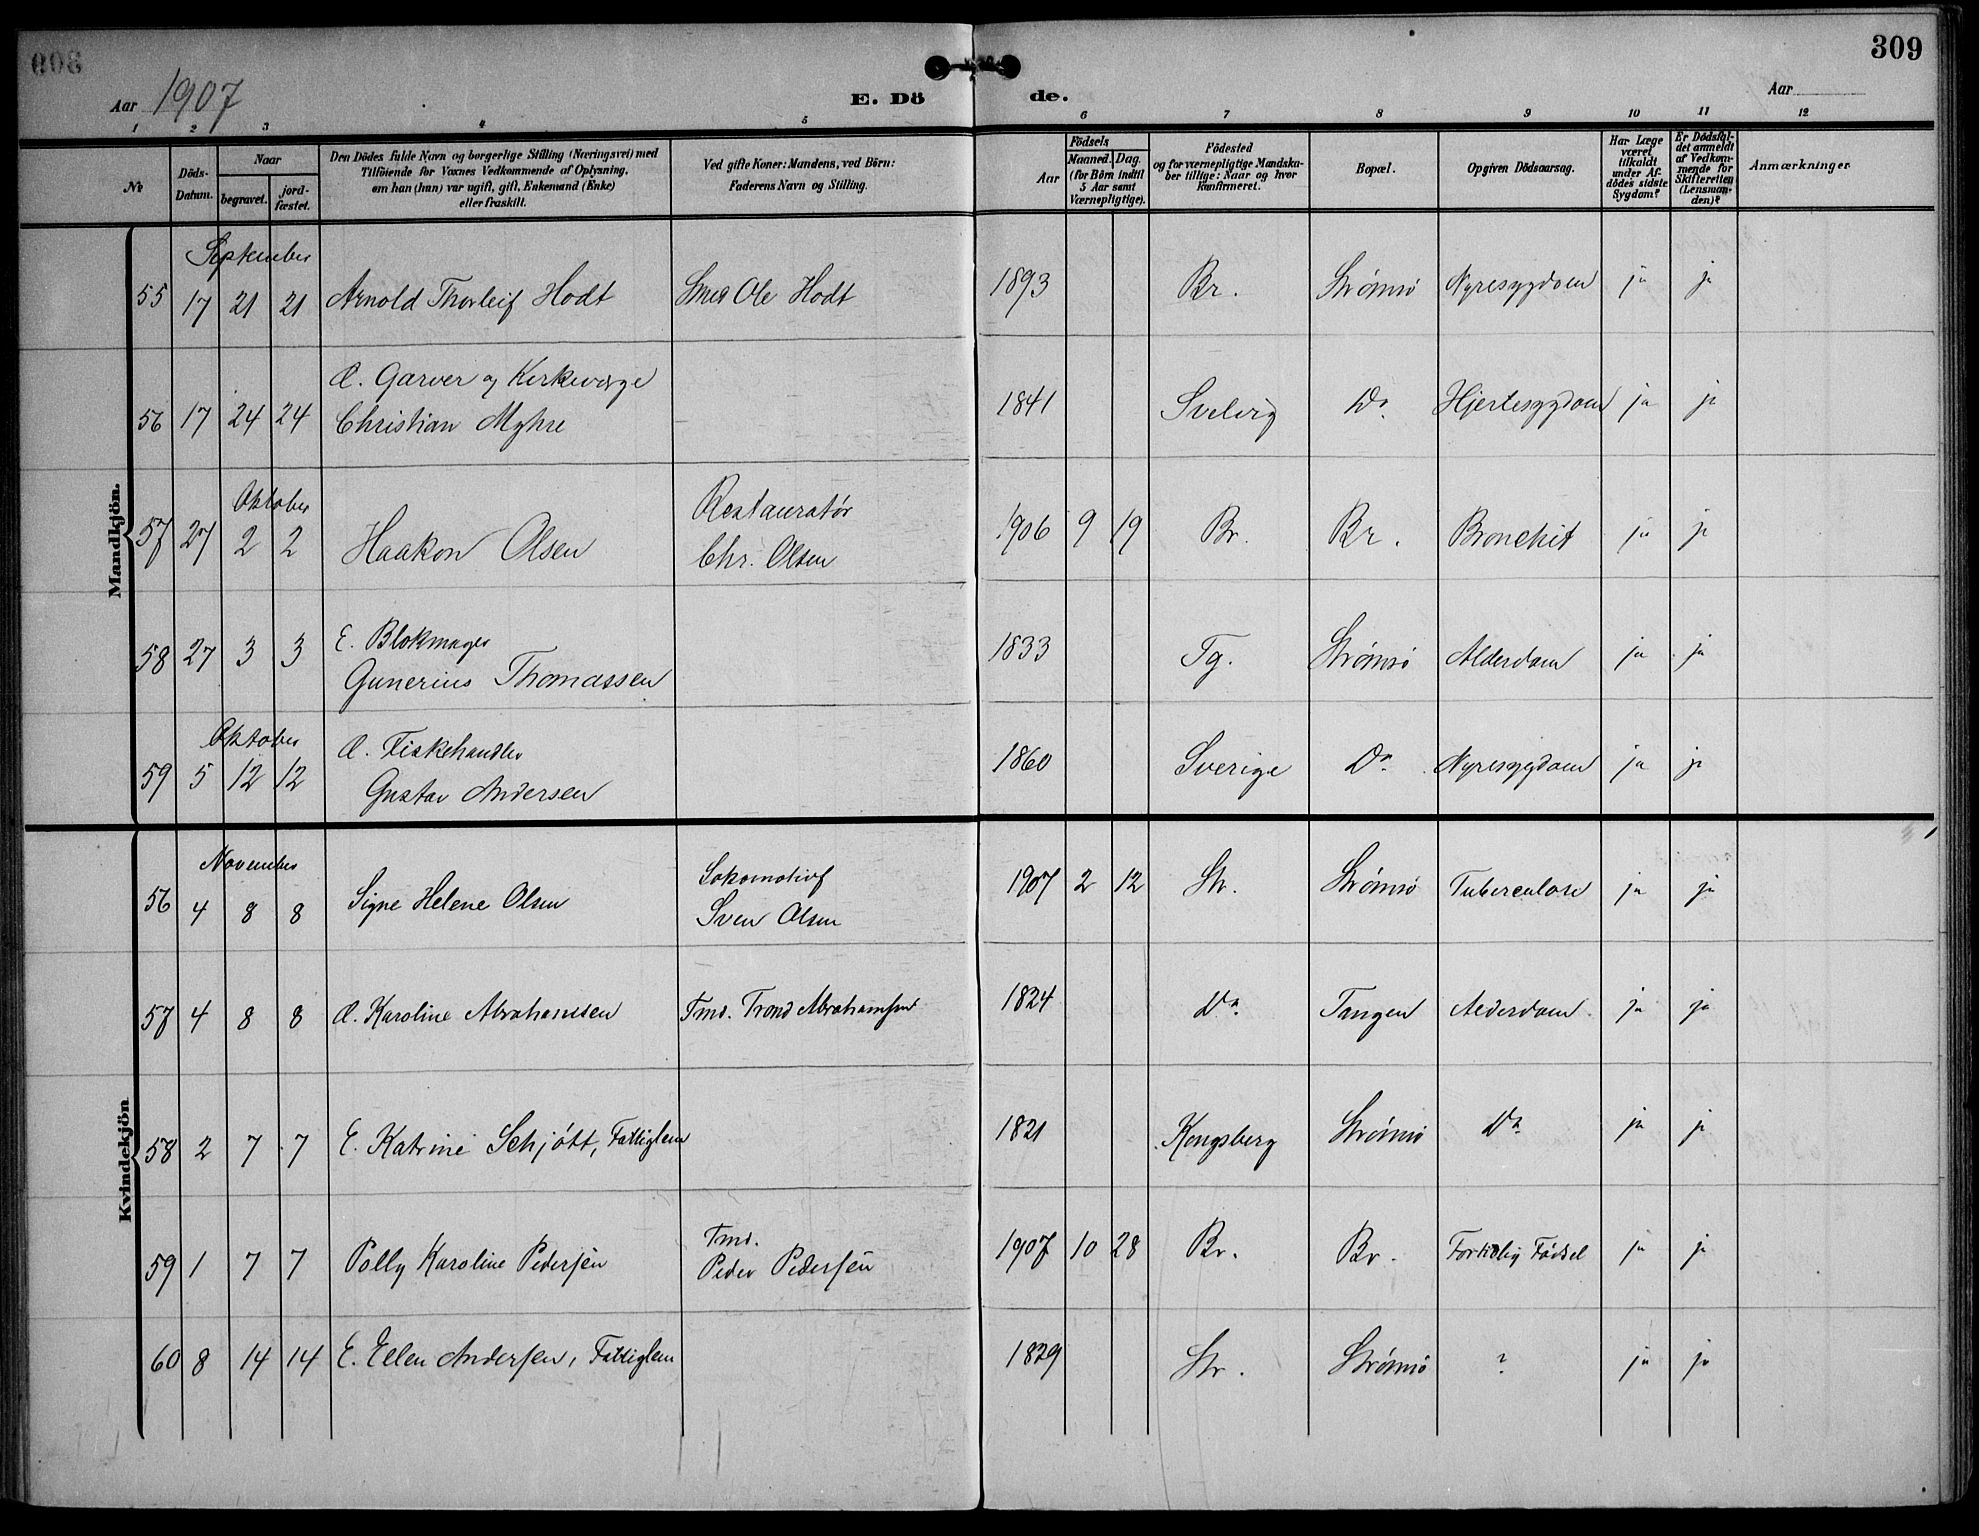 309
Aar 1907
E. Dö
de.
Aar
1 2 3 4 5 6 7 8 9 10 11 12
№
Döds-
Datum.
Naar
begravet.
jord-
fæstet.
Den Dödes fulde Navn og borgerlige Stilling (Næringsvei) med
Tilföiende for Voxnes Vedkommende af Oplysning,
om han (hun) var ugift, gift, Enkemand (Enke)
eller fraskilt.
Ved gifte Koner: Mandens, ved Börn:
Faderens Navn og Stilling.
Födsels
Aar
Maaned. Dag.
(for Börn indtil
5 Aar samt
Værnepligtige).
Födested
og for værnepligtige Mandska-
ber tillige: Naar og hvor
konfirmeret.
Bopæl.
Opgiven Dödsaarsag.
Har Læge
været
tilkaldt
under Af-
dödes sidste
Sygdom?
Er Dödsfal-
det anmeldt
af Vedkom-
mende for
Skifteretten
(Lensman-
den)?
Anmærkninger
Mandkjön.
September
55 17 21 21 Arnold Thorleif Hodt Smed Ole Hodt 1893 Br. Strømsø Nyresygdom ja ja
G. Garver og Kirkeværge
56 17 24 24 Christian Myhre 1841 Svelvig Do Hjertesygdom ja ja
Oktober
Restauratør
57 27 2 2 Haakon Olsen Chr. Olsen 1906 9 19 Br. Br. Bronchit ja ja
E. Blokmager
58 27 3 3 Gunerius Thomassen 1833 Tg. Strømsø Alderdom ja ja
Oktober
G. Fiskehandler
59 5 12 12 Gustav Andersen 1860 Sverige Do Nyresygdom ja ja
Kvindekjön
November
Lokomotivf
56 4 8 8 Signe Helene Olsen Sven Olsen 1907 2 12 Str. Strømsø Tuberculose ja ja
57 4 8 8 G. Karoline Abrahamsen Tmd. Trond Abrahamsen 1824 Do Tangen Alderdom ja ja
58 2 7 7 E. Katrine Schjøtt, Fattiglem 1821 Kongsberg Strømsø Do ja ja
Tmd.
59 1 7 7 Polly Karoline Pedersen Peder Pedersen 1907 10 28 Br. Br. Fortidlig Fødsel ja ja
60 8 14 14 E. Ellen Andersen, Fattiglem 1829 Str. Strømsø ? ja ja